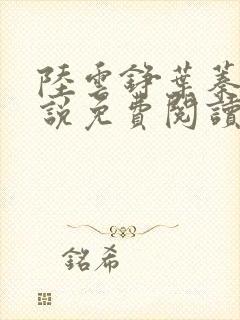 陸雲錚葉蓁
說免費閱讀
銘希